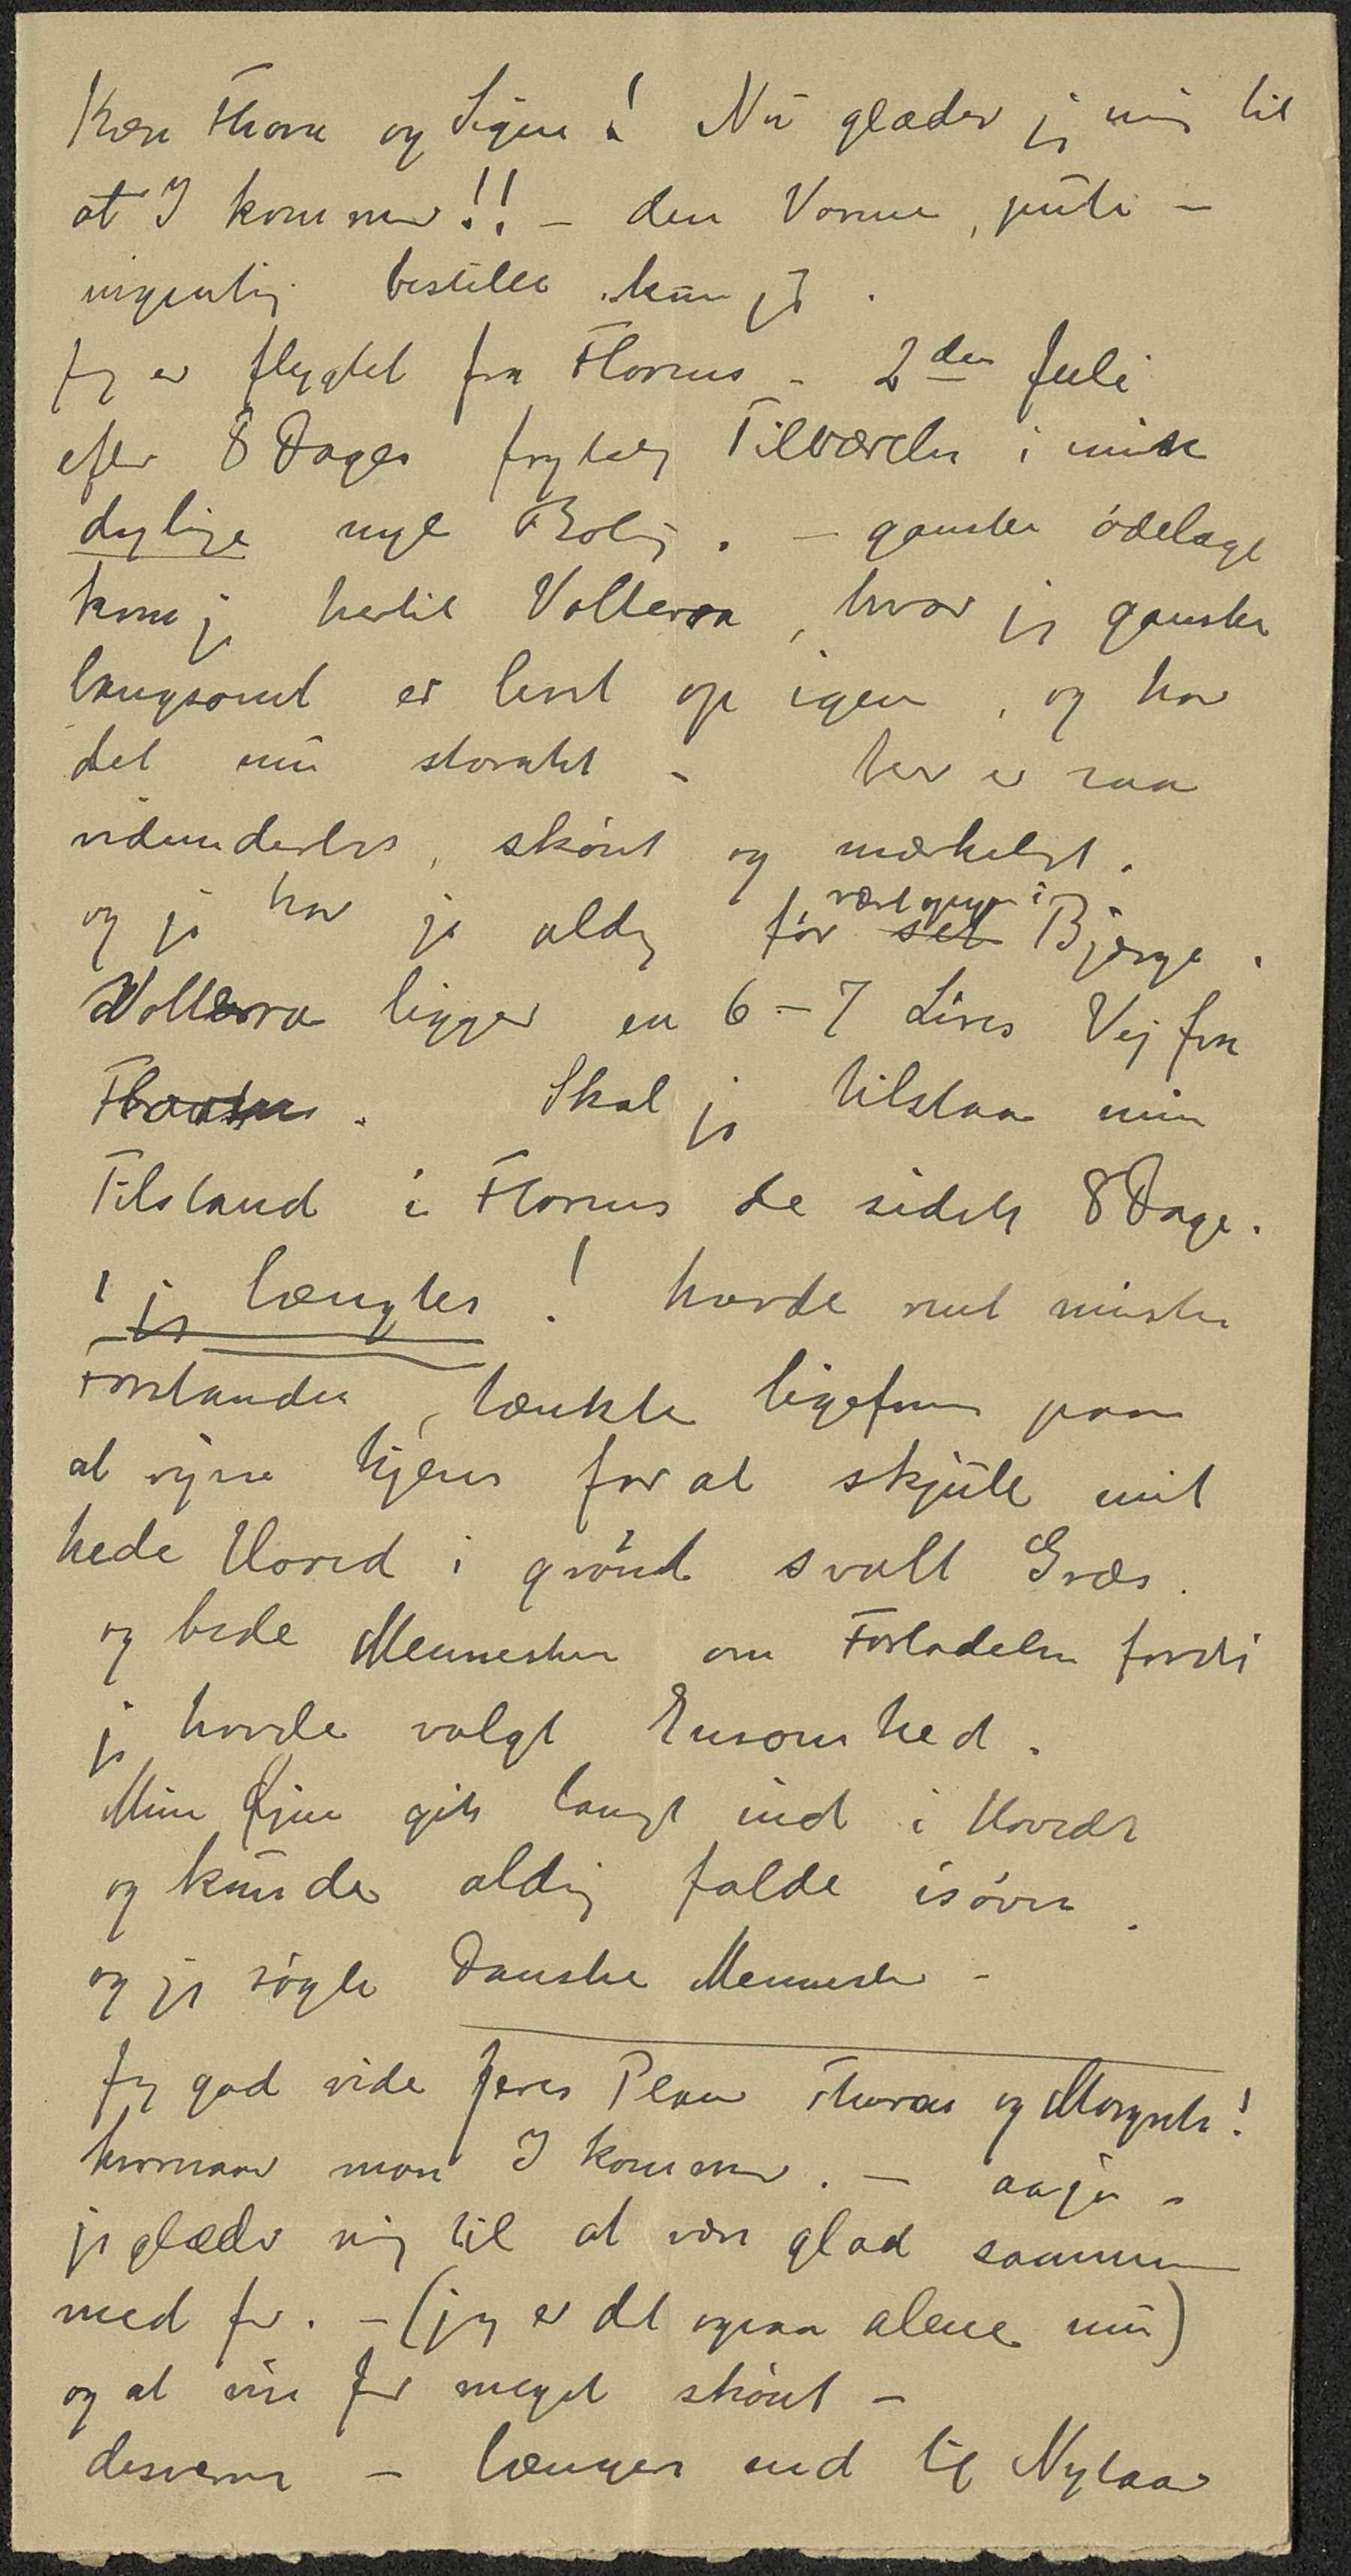 Kære Thora og Signe! Nu glæder jeg mig til
at I kommer!! – den Varme, puh –
ingenting bestille kan jeg.
Jeg er flygtet fra Florens – 2den Juli
efter 8 Dages frygtelig Tilværelse i min
dejlige nye Bolig. – ganske ødelagt
kom jeg hertil Volterra, hvor jeg ganske
langsomt er levet op igen, og har
det nu storartet – her er saa
vidunderligt, skønt og mærkeligt.
og jeg har jo aldrig før set været oppe i Bjerge.
Volterra ligger en 6–7 Lires Vej fra
Florens. Skal jeg tilstaa min
Tilstand i Florens de sidste 8 Dage.
! jeg længtes! havde nul mistet
Forstanden, tænkte ligefrem paa
at rejse hjem for at skjule mit
hede Hoved i grønt svalt Græs.
og bede Mennesker om Forladelse fordi
jeg havde valgt Ensomhed.
Mine Øjne gik langt ind i Hovedet
og kunde aldrig falde isøvn.
og jeg søgte Danske Mennesker –
Jeg gad vide Jeres Planer Thoras og Margrete!
hvornaar mon I kommer. – aaja –
jeg glæder mig til at være glad sammen
med Jer. – (jeg er det ogsaa alene nu)
og at vise Jer meget skønt –
desværre – længes ned til Nytaar